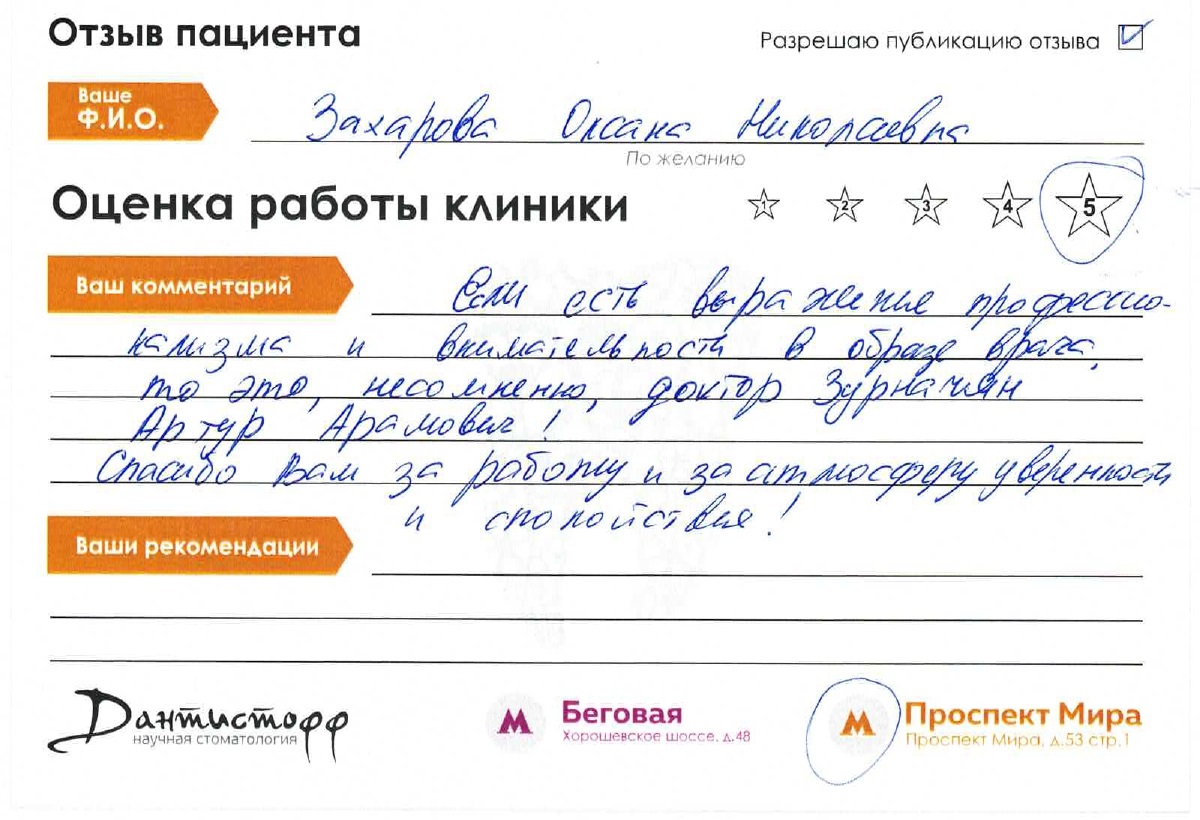 Отзыв пациента
Разрешаю публикацию отзыва
Ваше
Ф.И.О.
Захарова Оксана Николаевна
По желанию
Оценка работы клиники
1 2 3 4 5
Ваш комментарий
Если есть выражение профессио-
нализма и внимательности в образе врача,
то это, несомненно, доктор Зурначян
Артур Арамович!
Спасибо Вам за работу и за атмосферу уверенности
и спокойствия!
Ваши рекомендации
Дантистофф
научная стоматология
М Беговая
Хорошевское шоссе, д.48
М Проспект Мира
Проспект Мира, д.53 стр.1